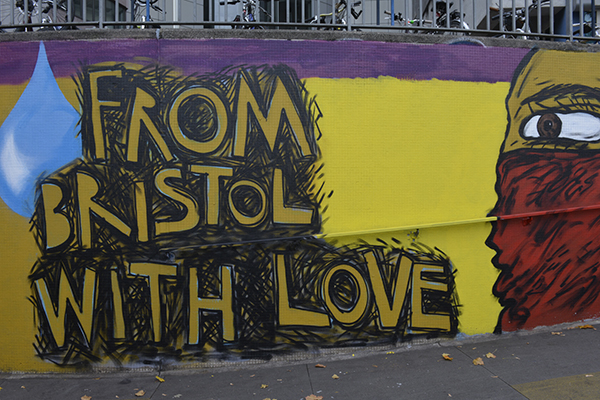 FROM
BRISTOL
WITH LOVE